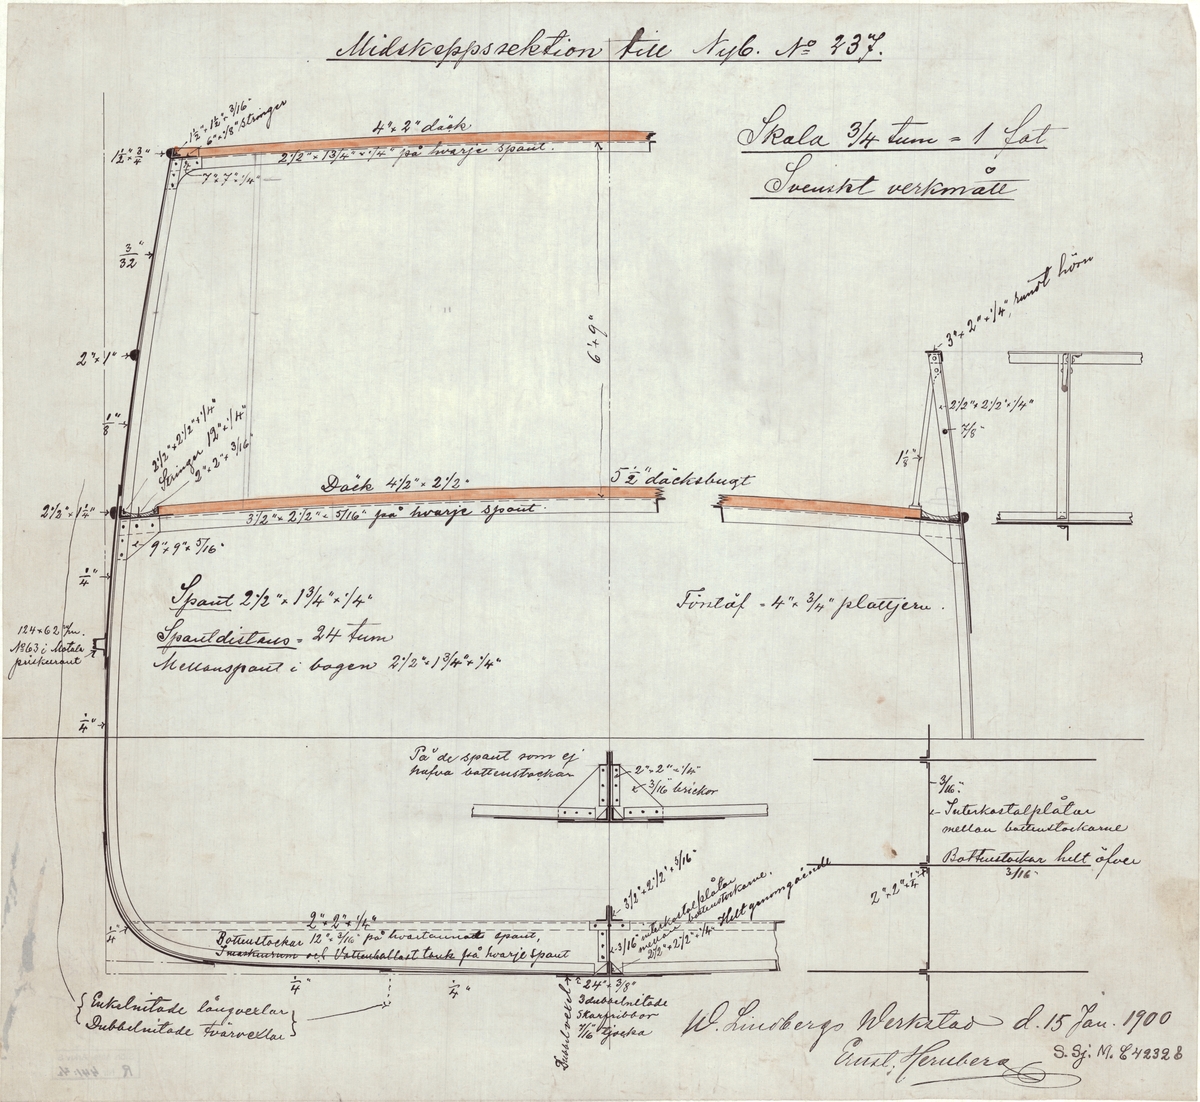 Midskeppssektion till Nyb. No 237.
Skala 3/4 tum = 1 fot
Svenskt verkmått
1 1/2" × 1 1/2" × 3/16"
6" × 1/8" Stringer
1 1/2" × 3/4"
4" × 2" däck
2 1/2" × 1 3/4" × 1/4" på hvarje spant.
7" × 7" × 1/4"
3/32"
2" × 1"
1/8"
6' × 9"
3" × 2" × 1/4", rundt hörn
2 1/2" × 2 1/2" × 1/4"
7/8"
1 1/8"
2 1/2" × 2 1/2" × 1/4"
Stringer 12" × 1/4"
2" × 2" × 3/16"
2 1/2" × 1 1/4"
Däck 4 1/2" × 2 1/2"
5 1/2" däcksbugt
3 1/2" × 2 1/2" × 5/16" på hvarje spant.
9" × 9" × 5/16"
1/4"
Spant 2 1/2" × 1 3/4" × 1/4"
Spantdistans = 24 tum
Mellanspant i bogen 2 1/2" × 1 3/4" × 1/4"
Förstäf = 4" × 3/4" plattjern.
124 × 62
No 63 i Motala
priskurant
1/4"
På de spant som ej
hafva bottenstockar
2" × 2" × 1/4"
3/16" brickor
3/16"
Interkostalplåtar
mellan bottenstockarne
Bottenstockar helt öfver
3/16"
2" × 2" × 1/4"
3 1/2" × 2 1/2" × 5/16"
3/16" interkostalplåtar
mellan bottenstockarne.
2 1/2" × 2 1/2" × 1/4" Helt genomgående
1/4"
2" × 2" × 1/4"
Bottenstockar 12" × 3/16" på hvartannat spant,
och Vattenballast tank på hvarje spant
1/4"
1/4"
24" × 3/8"
3dubbelnitade
Skarfribbor
7/16" tjocka
Enkelnitade långvexlar
Dubbelnitade tvärvexlar
W. Lindbergs Werkstad d. 15 Jan. 1900
Ernst Hernberg
S. Sj. M. C 42328